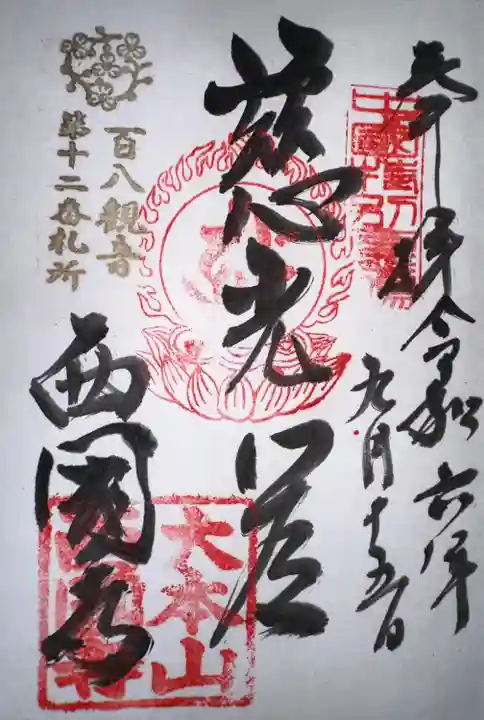 奉拝 令和六年
九月十五日
慈光
西國寺
百八観音
第十二番札所
大本山
西國寺